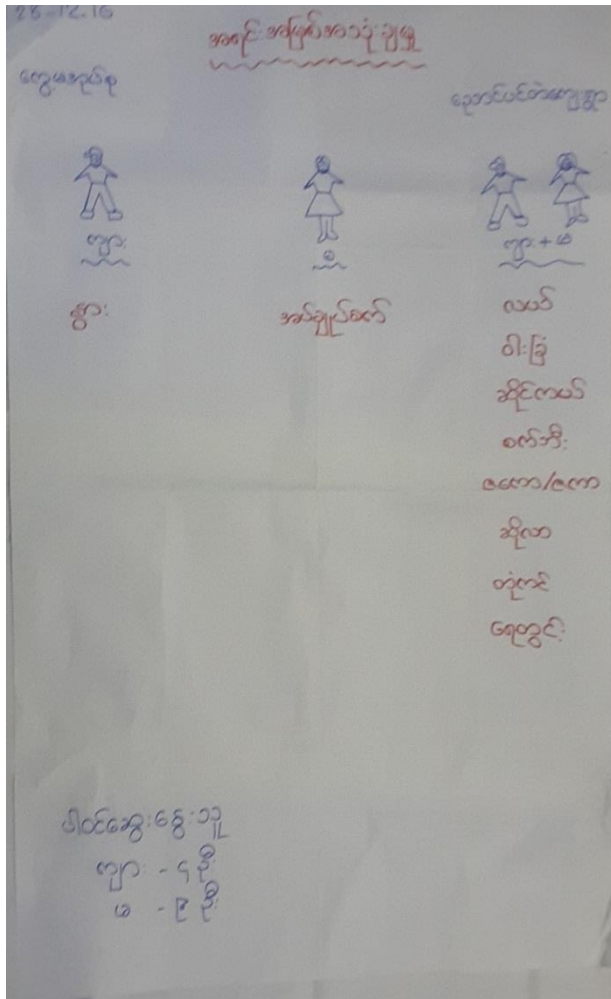 28-12-16
အရင်းအမြစ်အသုံးချမှု
တွေမအုပ်စု
ညောင်ပင်တဲကျေးရွာ
ကျား
မ
ကျား + မ
နွား
အပ်ချုပ်စက်
လယ်
ဝါးခြံ
ဆိုင်ကယ်
စက်ဘီး
ဇကော/ဇကာ
ဆိုလာ
တုံကင်
ရေတွင်း
ပါဝင်ဆွေးနွေးသူ
ကျား - ၄ ဦး
မ - ၉ ဦး